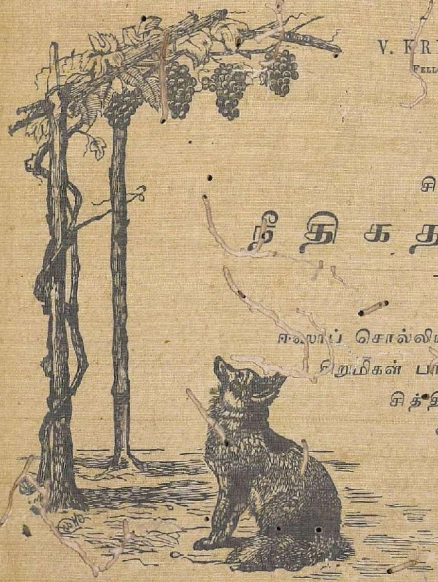 V. KR
FELL
சி
நீதி கத
ஈஸாப் சொல்லிய
சிறுமிகள் பா
சித்தி